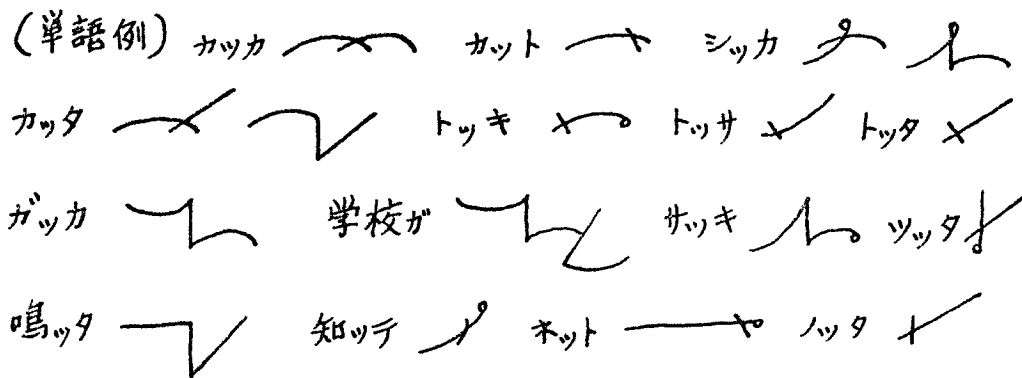 (単語例) カッカ カット シッカ
カッタ トッキ トッサ トッタ
ガッカ 学校ガ サッキ ツッタ
鳴ッタ 知ッテ ネット ノッタ